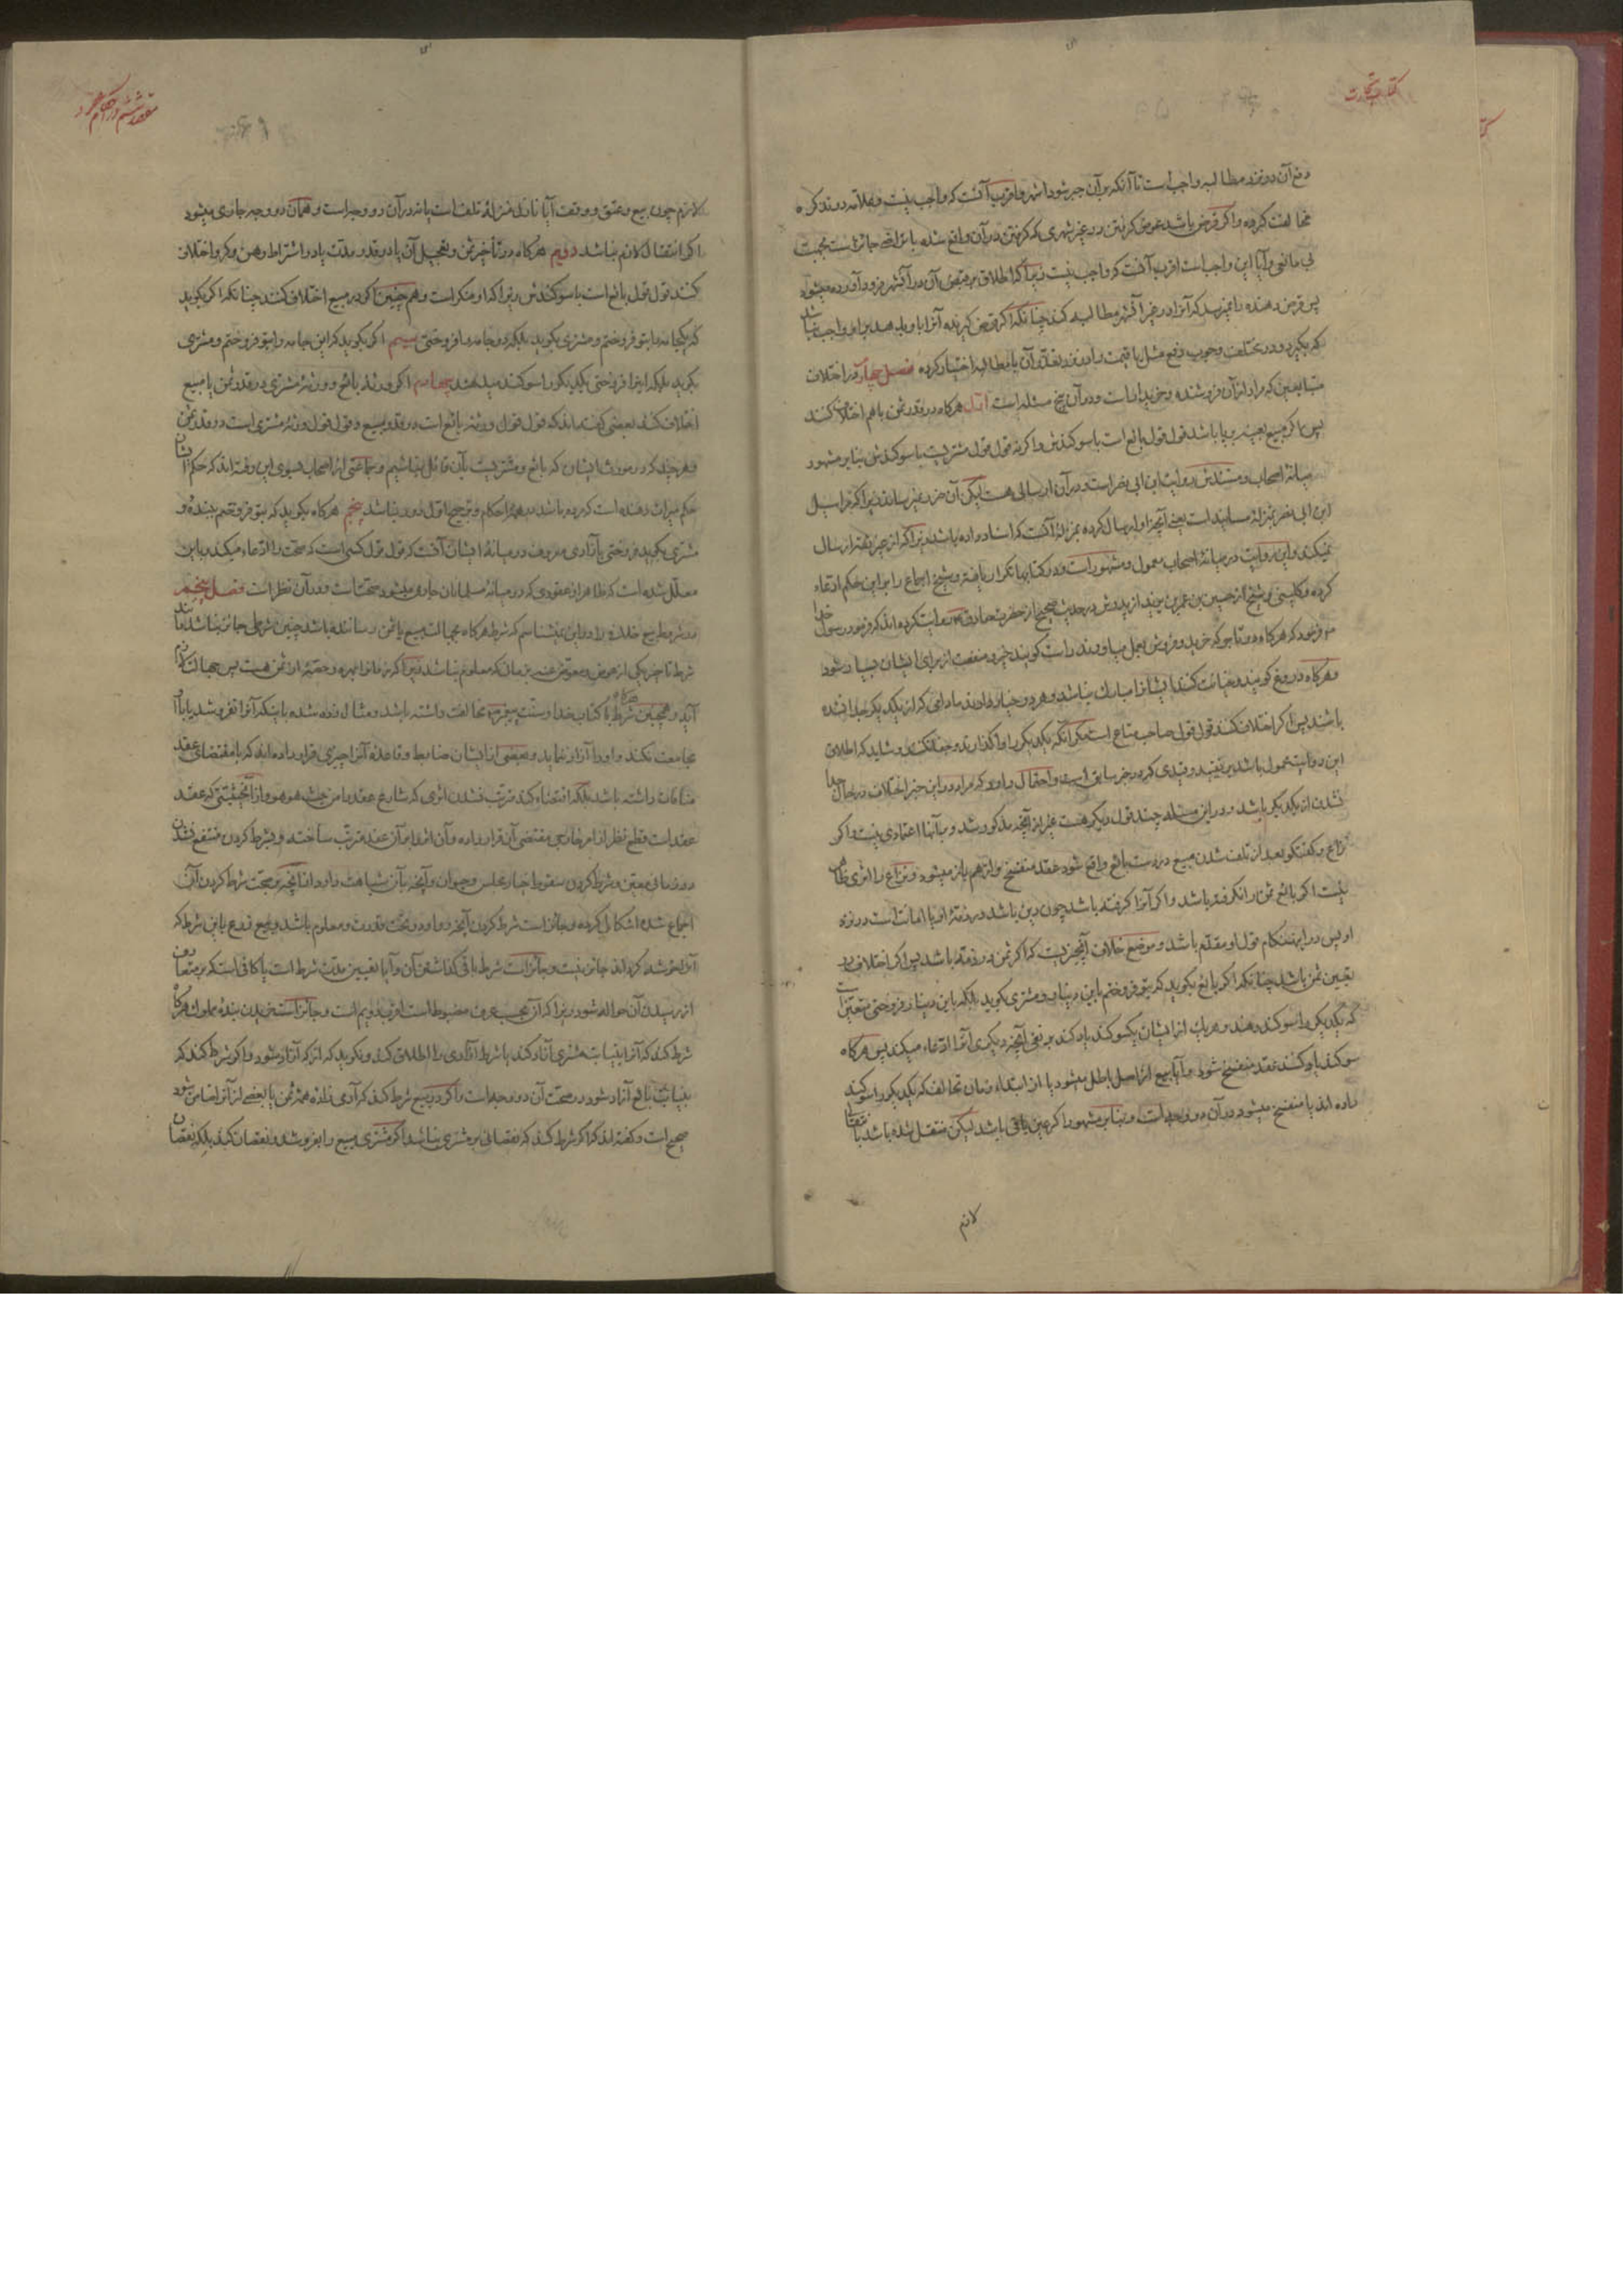 کتاب تجارت
دفع آن در نزد مطالبه واجب است تا آنکه بر آن جبر شود اشهر و اقرب آنست که واجب نیست و علامه در تذکره
مخالفت کرده و اگر قرض باشد عوض گرفتن در غیر شهری که گرفتن در آن واقع شده با تراضی جائز است بجهت
بی مانعی و آیا این واجب است اقرب آنست که واجب نیست زیرا که اطلاق مقتضی آن در آن شهر فرود آورده میشود
پس قرض دهنده را نمیرسد که آنرا در غیر آن شهر مطالبه کند چنانکه اگر قرض گیرنده آنرا باو بدهد بر او واجب نباشد
که بگیرد و در مختلف وجوب دفع مثل یا قیمت را در نزد تعذر آن با مطالبه اختیار کرده فصل چهارم در اختلاف
متبایعین که مراد از آن فروشنده و خریدار است و در آن پنج مسئله است اول هرگاه در قدر ثمن با هم اختلاف کنند
پس اگر مبیع بعینه بر پا باشد قول قول بائع است با سوگندش و اگر نه قول قول مشتریست با سوگندش بنابر مشهور
میانهٔ اصحاب و مستندش روایت ابن ابی نصر است و در آن ارسالی هست لیکن آن ضرر نمیرساند زیرا که مراسیل
ابن ابی نصر بمنزلهٔ مسانید است یعنی آنچه را او ارسال کرده بمنزلهٔ آنست که اسناد داده باشد زیرا که از جز ثقه ارسال
نمیکند و این روایت در میانهٔ اصحاب معمول و مشهور است و در کتابها تکرار یافته و شیخ اجماع را بر این حکم ادعاء
کرده و کلینی و شیخ از حسین بن عمر بن یزید از پدرش در حدیث صحیح از حضرت صادق روایت کرده‌اند که فرمود رسول خدا
فرمود که هرگاه دو تاجر که خرید و فروش بعمل میاورند راست گویند خیر و منفعت از برای ایشان بسیار شود
و هرگاه دروغ گویند و خیانت کنند ایشانرا مبارک نباشد و هر دو خیار دارند مادامی که از یکدیگر جدا نشده
باشند پس اگر اختلاف کنند قول قول صاحب متاع است مگر آنکه یکدیگر را واگذارند و شاید که اطلاق
این روایت محمول باشد بر تقیید و قیدی که در خبر سابق است و احتمال دارد که مراد در این خبر اختلاف در حال جدا
نشدن از یکدیگر باشد و در این مسئله چند قول دیگر هست غیر از آنچه مذکور شد و بآنها اعتمادی نیست و اگر
نزاع و گفتگو بعد از تلف شدن مبیع در دست بائع واقع شود عقد منفسخ و از هم باز میشود و نزاع را اثری ظاهر
نیست اگر بائع ثمن را نگرفته باشد و اگر آنرا گرفته باشد چون دین باشد در ذمهٔ او یا امانت است در نزد
او پس در این هنگام قول او مقدم باشد و موضع خلاف آنجا نیست که اگر ثمن در ذمه باشد پس اگر اختلاف در
تعیین ثمن باشد چنانکه اگر بائع بگوید که بتو فروختم باین دینار و مشتری بگوید بلکه باین دینار فروختی متعین است
که یکدیگر را سوگند دهند و هر یک از ایشان یکسوگند یاد کند بر نفی آنچه دیگری آنرا ادعاء میکند پس هرگاه
سوگند یاد کنند عقد منفسخ شود و آیا بیع از اصل باطل میشود یا از ابتداء زمان تحالف که یکدیگر را سوگند
داده‌اند یا منفسخ میشود در آن دو وجه است و بنابر مشهور اگر عین باقی باشد لیکن منتقل شده باشد با
لازم
مقصد ششم در احکام عقود
لازم چون بیع و عتق و وقف آیا نازل منزلهٔ تلف است یا نه در آن دو وجه است و همان دو وجه جاری میشود
اگر انتقال لازم نباشد دویم هرگاه در تأخیر ثمن و تعجیل آن یا در قدر مدت یا در اشتراط رهن و اختلاف
کنند قول قول بائع است با سوگندش زیرا که او منکر است و هم چنین اگر در مبیع اختلاف کنند چنانکه اگر بگوید
که یکجامه را بتو فروختم و مشتری بگوید بلکه دو جامه را فروختی سیم اگر بگوید که این جامه را بتو فروختم و مشتری
بگوید بلکه اینرا فروختی یکدیگر را سوگند میدهند چهارم اگر ورثهٔ بائع و ورثهٔ مشتری در قدر ثمن یا مبیع
اختلاف کنند بعضی گفته‌اند که قول قول ورثهٔ بائع است در قدر مبیع و قول قول ورثهٔ مشتری است در قدر ثمن
و هرچند که در مورث ایشان که بائع و مشتریست بآن قائل نباشیم و جماعتی از اصحاب بسوی این رفته‌اند که حکم ایشان
حکم میراث دهنده است که مرده باشد در همهٔ احکام و ترجیح اول دور نباشد پنجم هرگاه بگوید که بتو فروختم ببنده و
مشتری بگوید فروختی بآزادی معروف در میانهٔ ایشان آنست که قول قول کسی است که صحت را ادعاء میکند و باین
معلل شده است که ظاهر از عقودی که در میانهٔ مسلمانان جاری میشود صحت است و در آن نظر است فصل پنجم
در شروط بیع خلاف را در این نمیشناسم که شرط هرگاه بجهالت مبیع یا ثمن رسانیده باشد چنین شرطی جائز نباشد مانند
شرط تأخیر یکی از عوض و معوض عنه بزمان که معلوم نباشد زیرا که زمانرا بهره و حصهٔ از ثمن هست پس جهالت لازم
آید و همچنین شرط هرگاه با کتاب خدا و سنت پیغمبر مخالفت داشته باشد و مثال زده شده باینکه آنرا نفروشد یا با آن
مجامعت نکند و او را آزاد ننماید و بعضی از ایشان ضابط و قاعدهٔ آنرا چیزی قرار داده‌اند که با مقتضای عقد
منافات داشته باشد بلکه اقتضاء کند مرتب نشدن اثری که شارع عقد را من حیث هو هو و از آنجهتی که عقد
عقد است قطع نظر از امر خارجی مقتضی آن قرار داده و آن اثر را بر آن عقد مرتب ساخته و بشرط کردن منتفع نشدن
در زمانی معین و شرط کردن سقوط خیار مجلس و حیوان و آنچه بآن شباهت دارد از آنچه بر صحت شرط کردن آن
اجماع شده اشکالی کرده و جائز است شرط کردن آنچه در او در تحت قدرت و معلوم باشد و بیع زرع باین شرط که
آنرا خوشه کرداند جائز نیست و جائز است شرط باقی گذاشتن آن و آیا تعیین مدت شرط است یا کافی است که بر متعارف
از رسیدن آن حواله شود زیرا که آن بحسب عرف مضبوط است اقرب دویم است و جائز است خریدن بندهٔ مملوک هرگاه
شرط کند که آنرا بنیابت مشتری آزاد کند یا شرط آزادی را اطلاق کند و نگوید که از که آزاد شود و اگر شرط کند که
بنیابت بائع آزاد شود در صحت آن دو وجه است و اگر در بیع شرط کند که آدمی همهٔ ثمن یا بعضی از آنرا ضامن شود
صحیح است و گفته‌اند که اگر شرط کند که نقصانی بر مشتری نباشد اگر مشتری مبیع را بفروشد و نقصان کند بلکه نقصان